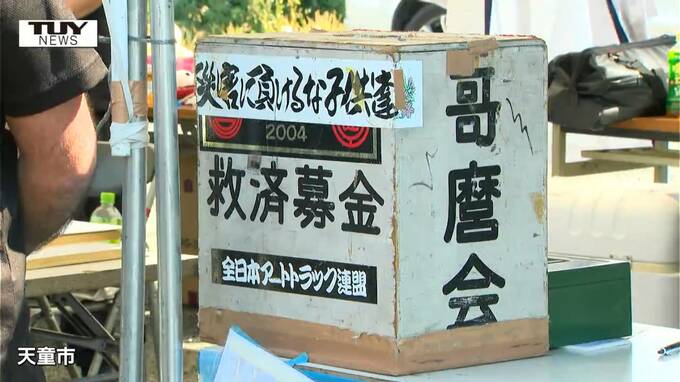 TUY
NEWS
災害に負けるな子供達
2004
救済募金
全日本アートトラック連盟
哥麿会
天童市